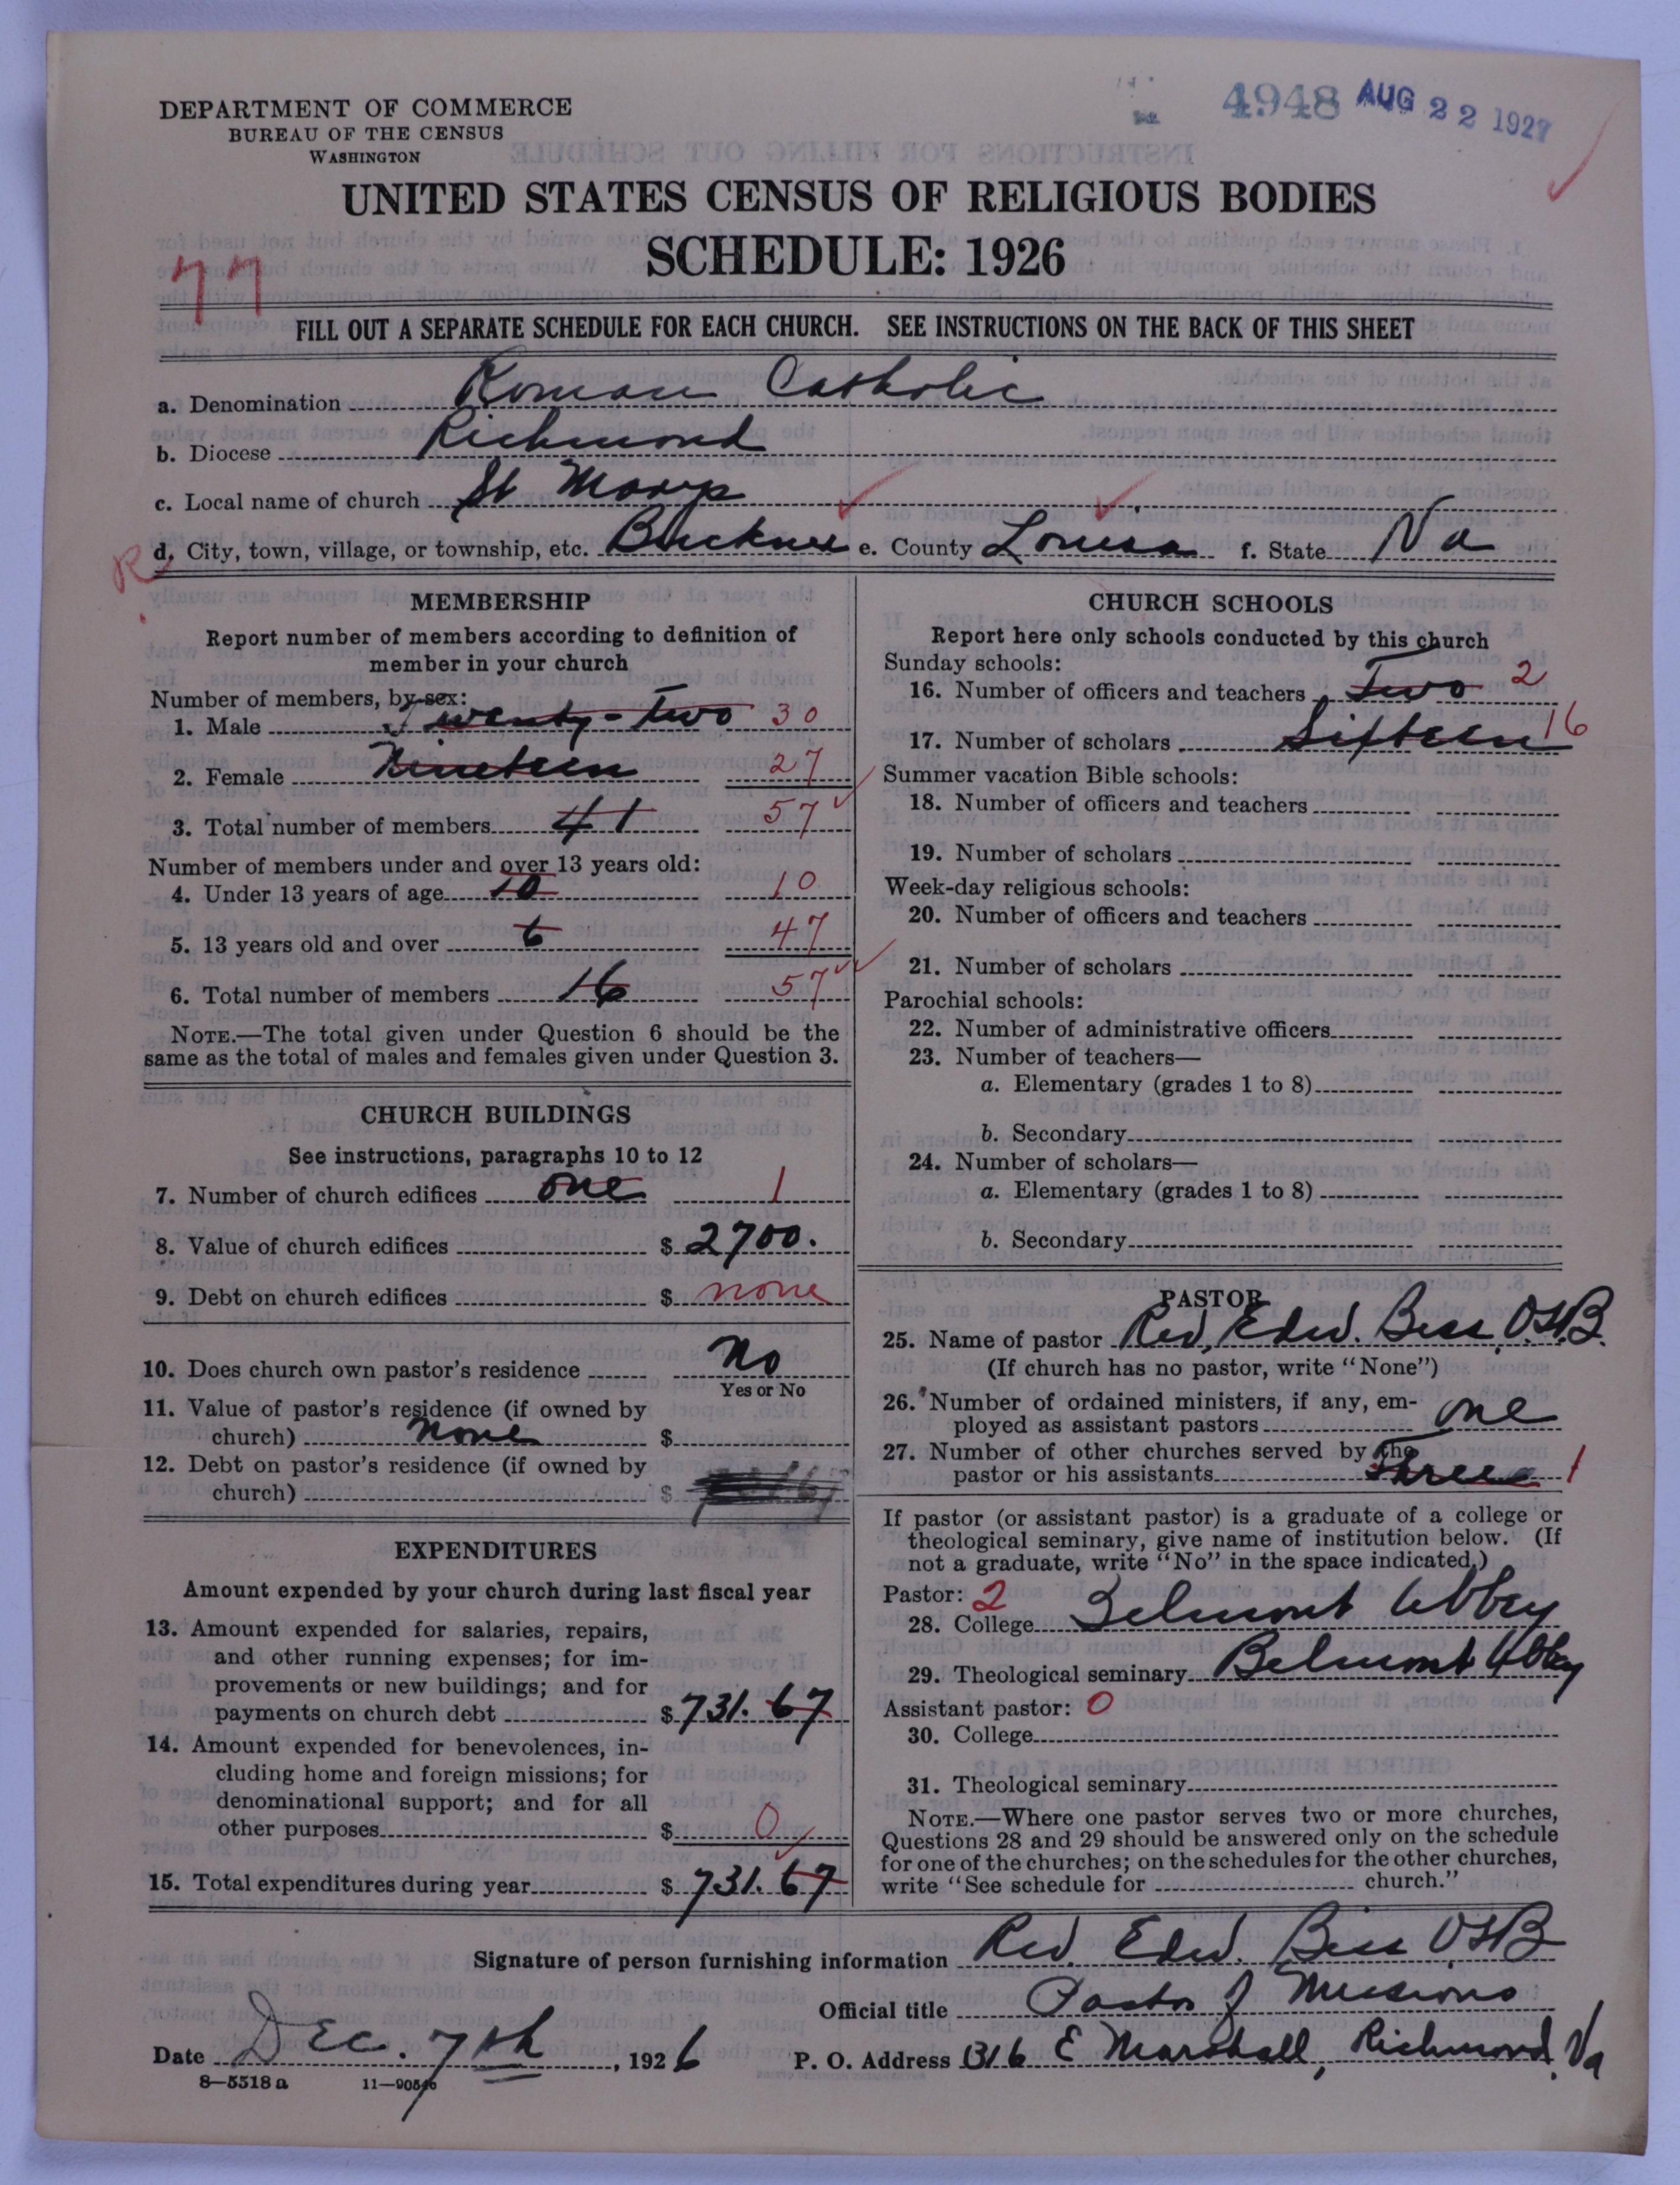 4948 AUG 22 1927
DEPARTMENT OF COMMERCE
BUREAU OF THE CENSUS
WASHINGTON
UNITED STATES CENSUS OF RELIGIOUS BODIES
SCHEDULE: 1926
77
FILL OUT A SEPARATE SCHEDULE FOR EACH CHURCH. SEE INSTRUCTIONS ON THE BACK OF THIS SHEET
a. Denomination Roman Catholic
b. Diocese Richmond
c. Local name of church St Marys
R d. City, town, village, or township, etc. Buckner e. County Louisa f. State Va
MEMBERSHIP
Report number of members according to definition of
member in your church
Number of members, by sex:
1. Male Twenty-two 30
2. Female Nineteen 27
3. Total number of members 41 57
Number of members under and over 13 years old:
4. Under 13 years of age 10 10
5. 13 years old and over 6 47
6. Total number of members 16 57
NOTE.—The total given under Question 6 should be the
same as the total of males and females given under Question 3.
CHURCH BUILDINGS
See instructions, paragraphs 10 to 12
7. Number of church edifices one 1
8. Value of church edifices $ 2700.
9. Debt on church edifices $ none
10. Does church own pastor's residence No
Yes or No
11. Value of pastor's residence (if owned by
church) None $
12. Debt on pastor's residence (if owned by
church) $
EXPENDITURES
Amount expended by your church during last fiscal year
13. Amount expended for salaries, repairs,
and other running expenses; for im-
provements or new buildings; and for
payments on church debt $ 731.67
14. Amount expended for benevolences, in-
cluding home and foreign missions; for
denominational support; and for all
other purposes $ 0
15. Total expenditures during year $ 731.67
CHURCH SCHOOLS
Report here only schools conducted by this church
Sunday schools:
16. Number of officers and teachers Two 2
17. Number of scholars Sixteen 16
Summer vacation Bible schools:
18. Number of officers and teachers
19. Number of scholars
Week-day religious schools:
20. Number of officers and teachers
21. Number of scholars
Parochial schools:
22. Number of administrative officers
23. Number of teachers—
a. Elementary (grades 1 to 8)
b. Secondary
24. Number of scholars—
a. Elementary (grades 1 to 8)
b. Secondary
PASTOR
25. Name of pastor Rev. Edw. O.S.B.
(If church has no pastor, write "None")
26. Number of ordained ministers, if any, em-
ployed as assistant pastors one
27. Number of other churches served by the
pastor or his assistants Three 1
If pastor (or assistant pastor) is a graduate of a college or
theological seminary, give name of institution below. (If
not a graduate, write "No" in the space indicated.)
Pastor: 2
28. College Belmont Abbey
29. Theological seminary Belmont Abbey
Assistant pastor: 0
30. College
31. Theological seminary
NOTE.—Where one pastor serves two or more churches,
Questions 28 and 29 should be answered only on the schedule
for one of the churches; on the schedules for the other churches,
write "See schedule for church."
Signature of person furnishing information Rev. Edw. O.S.B
Official title Pastor of Missions
Date Dec. 7th, 1926 P. O. Address 1316 E Marshall, Richmond, Va
8—5518a 11—90546